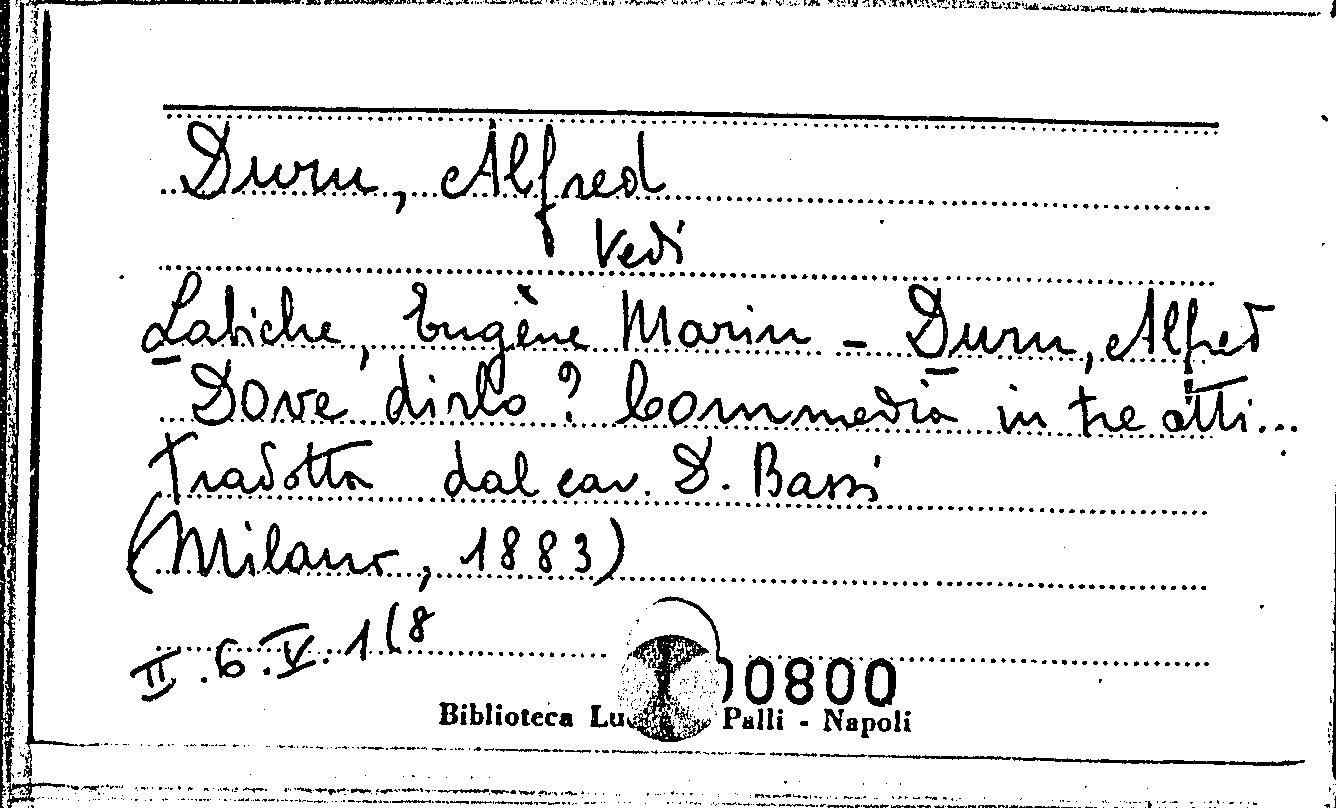 Duru, Alfred
Vedi
Labiche, Eugène Marin - Duru, Alfred
Dove dirlo? Commedia in tre atti...
Tradotta dal cav. D. Bassi
(Milano, 1883)
II.6.V.1(8
00800
Biblioteca Palli - Napoli